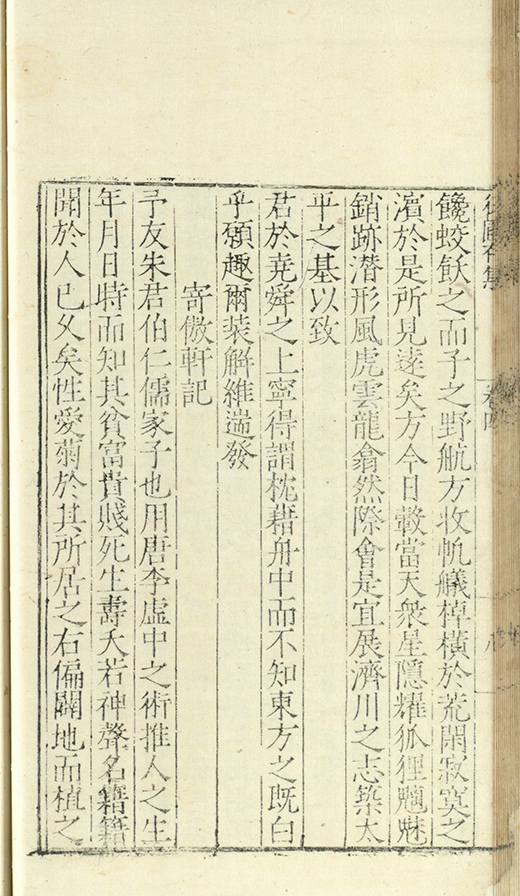 饞蛟飫之而子之野航方收帆艤棹橫於荒閑寂寞之
濱於是所見遠矣方今日轂當天衆星隱耀狐狸魑魅
銷跡潛形風虎雲龍翕然際會是宜展濟川之志築太
平之基以致
君於堯舜之上寧得謂枕藉舟中而不知東方之既白
乎願趣爾装觧維遄發
寄傲軒記
予友朱君伯仁儒家子也用唐李虛中之術推人之生
年月日時而知其貧富貴賤死生壽夭若神聲名籍籍
聞於人已久矣性愛菊於其所居之右偏闢地而植之